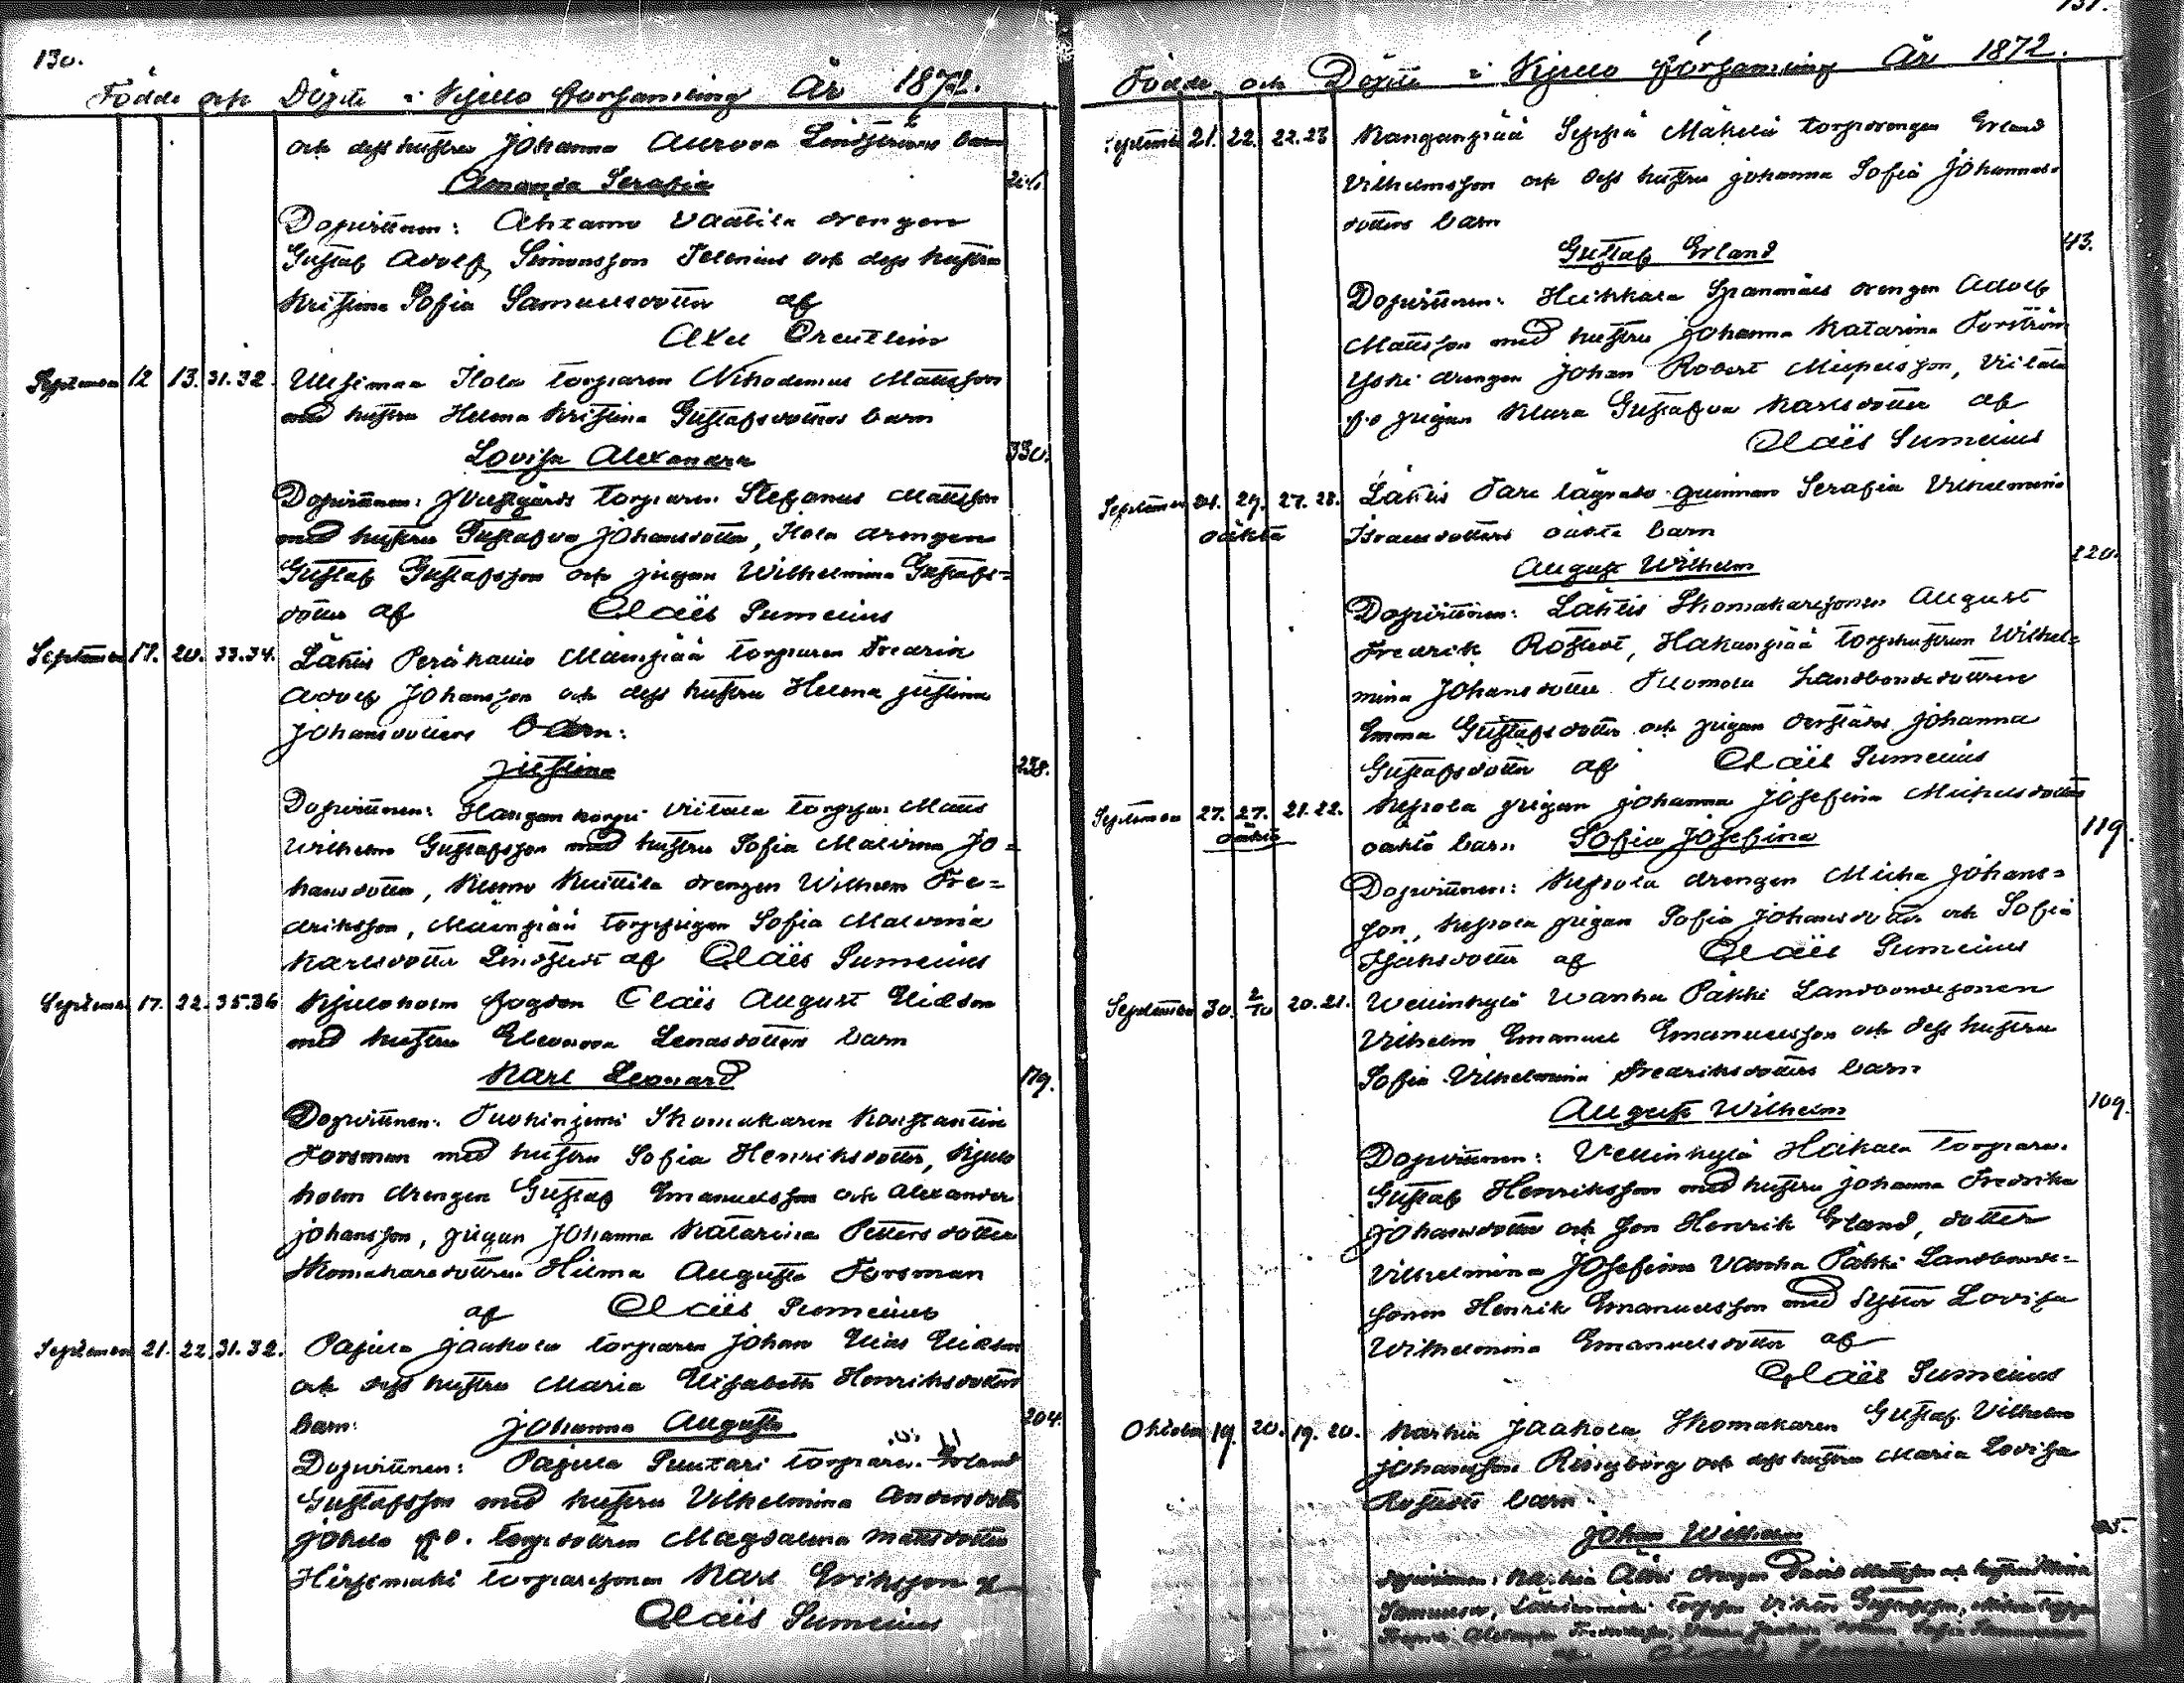 130.
Födde och Döpte i Kjulo församling År 1872.
och dess hustrus Johanna Aurora Lindströms barn
Amanda Serafia
Dopvittnen: Ahtamo Vaatila drengen
Gustaf Adolf Simonsson Selenius och dess hustru
Kristina Sofia Samuelsdotter af
Axel Oreutlin
September 12 13. 31.32. Uusimaa Ilola torparen Nikodemus Mattsson
med hustru Helena Kristina Gustafsdotters barn
Lovisa Alexandra 330.
Dopvittnen: torparen Stefanus Mattsson
med hustru Gustafva Johansdotter, Ilola drengen
Gustaf Gustafsson och pigan Wilhelmina Gustafs=
dotter af Claës Sumelius
September 17. 20. 33.34. Lähtis Peräkallio Mäenpää torparen Fredrik
Adolf Johansson och dess hustru Helena Justina
Johansdotters barn:
Justina 238.
Dopvittnen: Hangankorpi Viitala torpar Matts
Wilhelm Gustafsson med hustru Sofia Malvina Jo=
hansdotter, Kuittila drengen Wilhelm Fre=
driksson, Mäenpää torppigan Sofia Malvina
Karlsdotter Lindstedt af Claës Sumelius
September 17. 22. 35.36 Kjuloholm fogden Claës August Eliasson
med hustru Eleonora Lenasdotters barn
Karl Leonard 179.
Dopvittnen: Tuohiniemi Skomakaren Konstantin
Forsman med hustru Sofia Henriksdotter, Kjulo
holm drengen Gustaf Emanuelsson och Alexander
Johansson, pigan Johanna Katarina Pettersdotter
Skomakaredottren Hilma Augusta Forsman
af Claës Sumelius
September 21. 22. 31.32. Pajula Jaakola torparen Johan Elias Eliasson
och dess hustru Maria Elisabeth Henriksdotters
barn: Johanna Augusta 204.
Dopvittnen: Pajula Puutari torparen Erland
Gustafsson med hustru Vilhelmina Andersdotter
torpdottren Magdalena Mattsdotter
Hirsimäki torparesonen Karl Eriksson af
Claës Sumelius
131.
Födde och Döpte i Kjulo församling År 1872.
September 21. 22. 22.23 Kanganpää Seppä Mäkelä torpdrengen Erland
Vilhelmsson och dess hustru Johanna Sofia Johannes-
dotters barn
Gustaf Erland 43.
Dopvittnen: Heikkala Spannmäs drengen Adolf
Mattsson med hustru Johanna Katarina Forström
Yski drengen Johan Robert Mickelsson, Viitala
f.o pigan Klara Gustafva Karlsdotter af
Claës Sumelius
September 24. 29. 27.28. Lähtis Tare lägrade qvinnan Serafia Vilhelmina
oäkta Israelsdotters oäkta barn
August Wilhelm 220.
Dopvittnen: Lähtis Skomakaresonen August
Fredrik Rostedt, Hakanpää torphustrun Wilhel=
mina Johansdotter Tuomola Landbondedottren
Emma Gustafsdotter och pigan derstädes Johanna
Gustafsdotter af Claës Sumelius
September 27. 27. 21.22. Kepola pigan Johanna Josefina Mickelsdotters
oäkta oäkta barn Sofia Josefina 119.
Dopvittnen: Kepola drengen Micha Johans=
son, Kepola pigan Sofia Johansdotter och Sofia
Isaksdotter af Claës Sumelius
September 30. 2/10 20.21. Wellinkylä Wanha Päkki Landbondesonen
Vilhelm Emanuel Emanuelsson och dess hustru
Sofia Vilhelmina Fredriksdotters barn
August Wilhelm 109.
Dopvittnen: Vellinkylä Hakala torparen
Gustaf Henriksson med hustru Johanna Fredrika
Johansdotter och son Henrik Erland, dotter
Vilhelmina Josefina Vanha Päkki Landbonde=
sonen Henrik Emanuelsson med Syster Lovisa
Wilhelmina Emanuelsdotter af
Claës Sumelius
Oktober 19. 20. 19.20. Karhia Jaakola Skomakaren Gustaf Vilhelm
Johansson Ringborg och dess hustru Maria Lovisa
Rostedts barn
Johan Wilhelm
Dopvittnen: Karhia drengen David Mattsson och hustru Miina